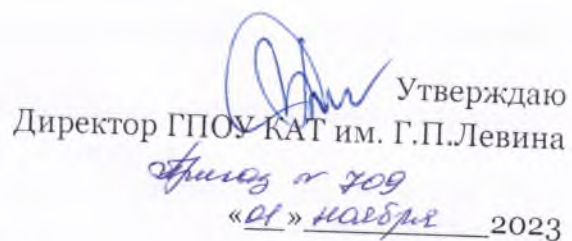 Утверждаю
Директор ГПОУ КАТ им. Г.П.Левина
Приказ № 709
«01» ноября 2023